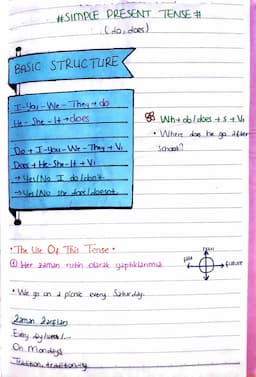 #SIMPLE PRESENT TENSE#
(do, does)
BASIC STRUCTURE
I-You-We-They→do
He-She-It→does
Do+I-You-We-They+V1
Does+He-She-It+V1
→Yes/No I do/don't
→Yes/No she does/doesn't
Wh+do/does+s+V1
• Where does he go after
school?
• The Use Of This Tense •
① Her zaman rutin olarak yaptıklarımız
past
now
future
• We go on a picnic every Saturday.
Zaman Zarfları
Every
On Mondays